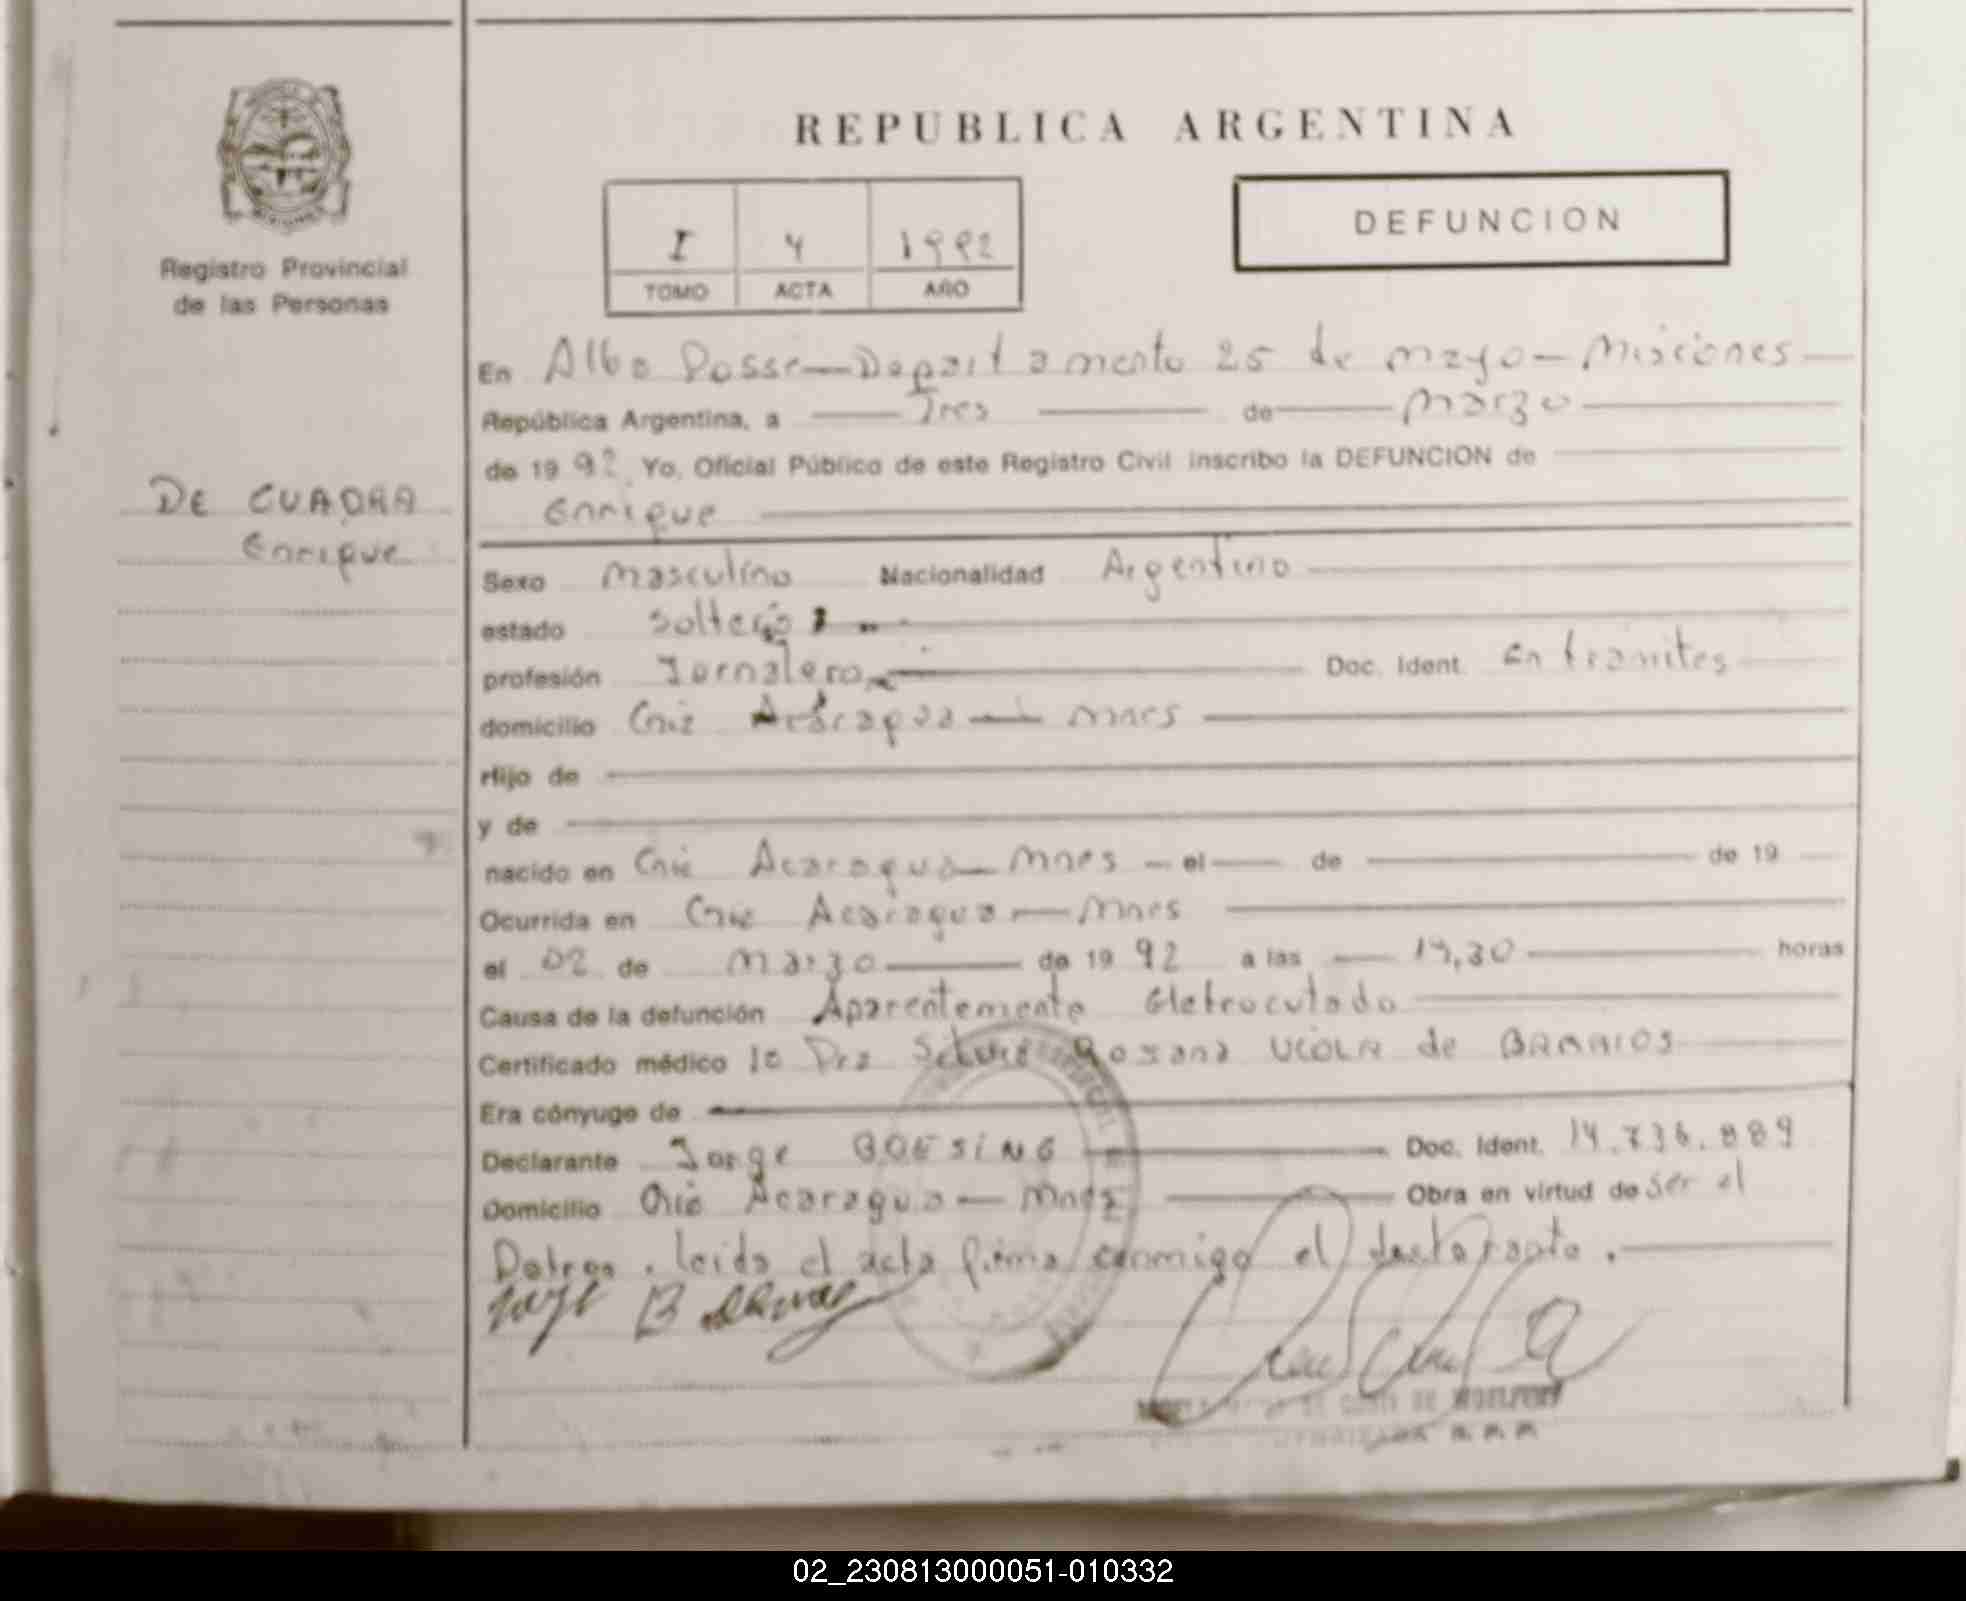 REPUBLICA ARGENTINA
DEFUNCION
I 4 1992
TOMO ACTA AÑO
Registro Provincial
de las Personas
DE CUADRA
Enrique
En Alba Posse - Departamento 25 de mayo - Misiones
República Argentina, a Tres de Marzo
de 19 92 Yo, Oficial Público de este Registro Civil inscribo la DEFUNCION de
Enrique
Sexo masculino Nacionalidad Argentino
estado soltero
profesión Jornalero Doc. Ident. En tramites
domicilio Acaragua - Mnes
Hijo de
y de
nacido en Acaragua - Mnes - el de de 19
Ocurrida en Acaragua - Mnes
el 02 de marzo de 19 92 a las horas
Causa de la defunción Aparentemente Eletrocutado
Certificado médico Dra Rosana VIOLA de BARRIOS
Era cónyuge de
Declarante Jorge BOESING Doc. Ident. 14.736.889
Domicilio Acaragua - Mnes Obra en virtud de ser el
Patron. leida el acta firma conmigo el
02_230813000051-010332